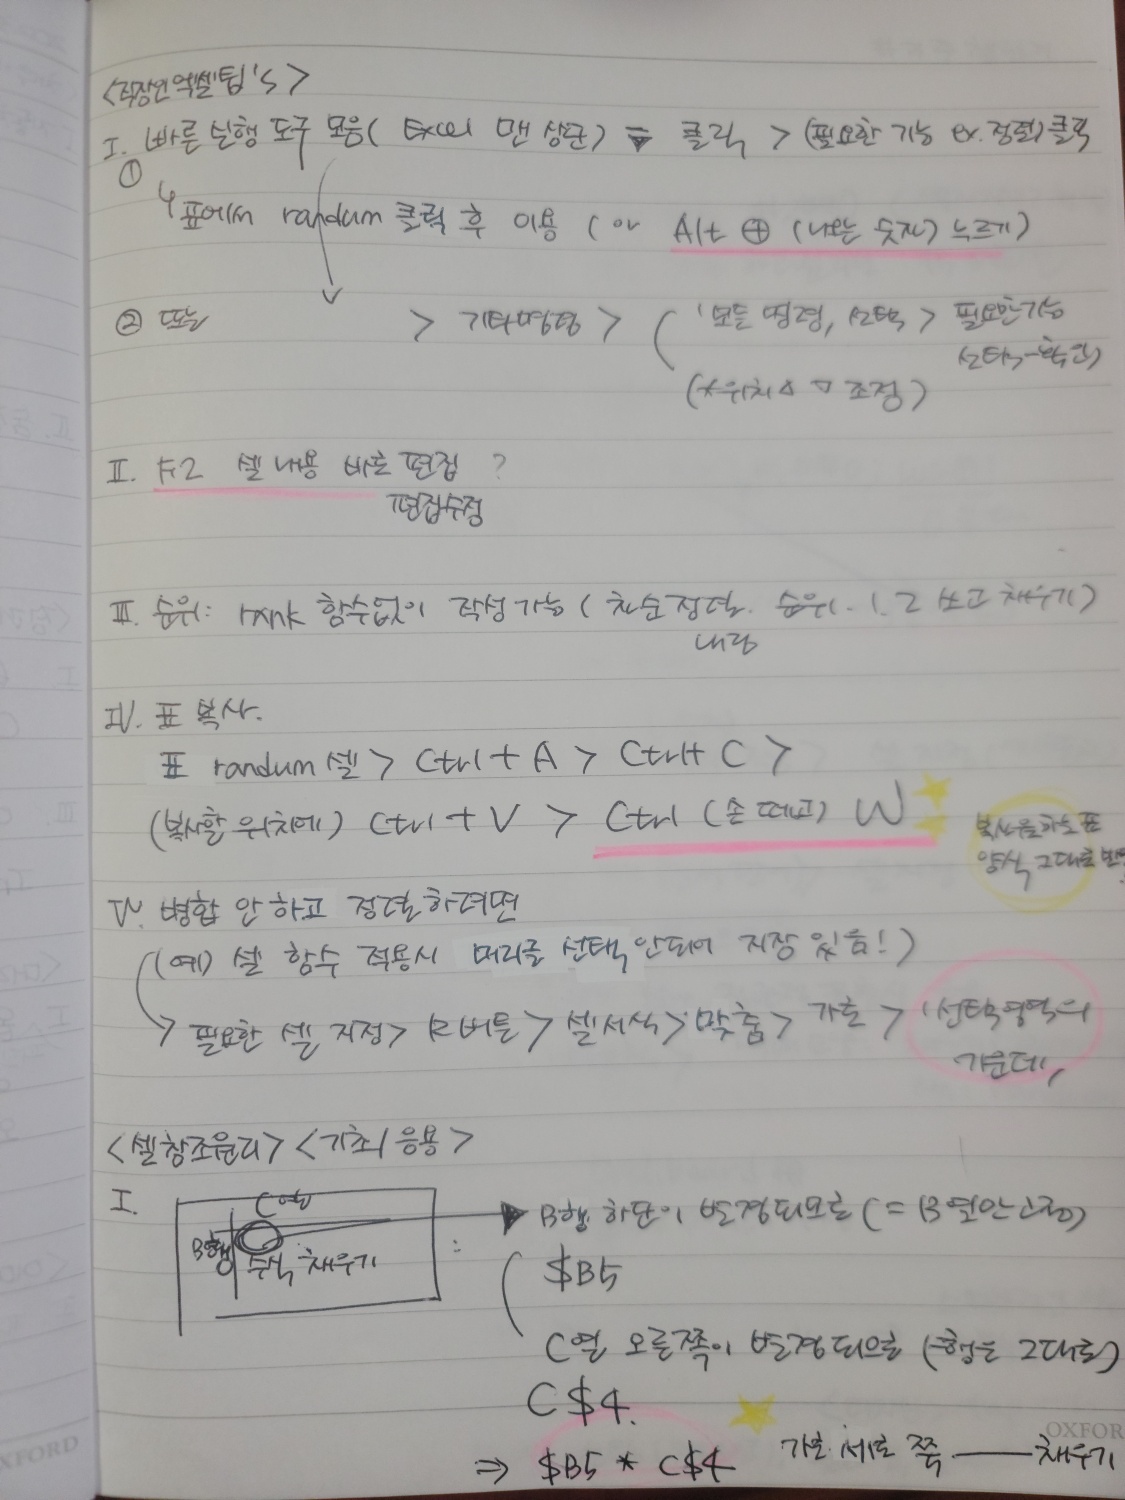 <직장인 엑셀팁's>
I. 빠른 실행 도구 모음( Excel 맨 상단) 클릭 > (필요한 기능 ex. 정렬) 클릭
①
↳ 표에서 randum 클릭 후 이용 ( or Alt ⊕ (나오는 숫자) 누르기)
② 또는 > 기타명령 > ( '모든 명령, 선택 > 필요한기능
선택-확인)
(*위치 △ ▽ 조정)
II. F2 셀 내용 바로 편집 ?
편집수정
III. 순위: rank 함수없이 작성가능 ( 차순정렬. 순위. 1. 2 쓰고 채우기)
내림
IV. 표 복사.
표 randum 셀 > Ctrl + A > Ctrl + C >
(복사할 위치에) Ctrl + V > Ctrl (손 떼고) W
복사하는 표
양식 그대로
V. 병합 안하고 정렬하려면
(예) 셀 함수 적용시 머리글 선택 안되어 지장 있음!)
> 필요한 셀 지정 > R버튼 > 셀서식 > 맞춤 > 가로 > '선택영역의
가운데,
<셀참조원리> <기초/응용>
I.
C열
B행
수식 채우기
:
B행 하단이 변경되므로 ( = B열만 고정)
$B5
C열 오른쪽이 변경되므로 (행은 그대로)
C$4.
⇒ $B5 * C$4 가로 세로 쭉 ― 채우기
OXFOR
XFORD